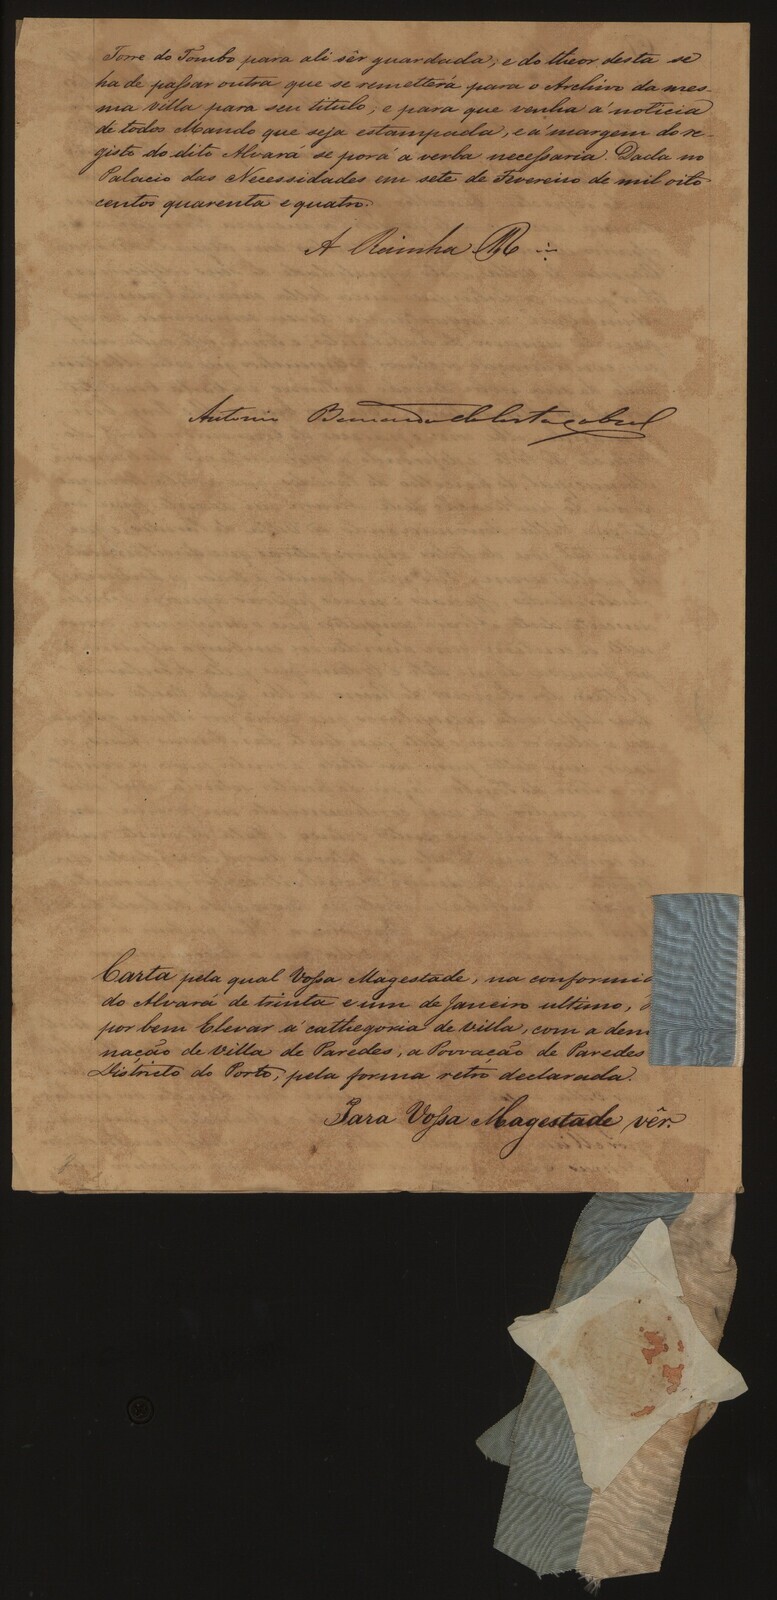 Torre do Tombo para ali sêr guardada, e do theor desta se
ha de passar outra que se remetterá para o Archivo da mes-
ma Villa para seu titulo, e para que venha á noticia
de todos Mando que seja estampada, e á margem do re-
gisto do dito Alvará se porá a verba necessaria. Dada no
Palacio das Necessidades em sete de Fevereiro de mil oito
centos quarenta e quatro.
A Rainha
Antonio Bernardo da Costa Cabral
Carta pela qual Vossa Magestade, na conformi
do Alvará de trinta e um de Janeiro ultimo,
por bem Elevar á cathegoria de Villa, com a
nação de Villa de Paredes, a Povoação de Paredes
Districto do Porto, pela forma retro declarada.
Para Vossa Magestade vêr.